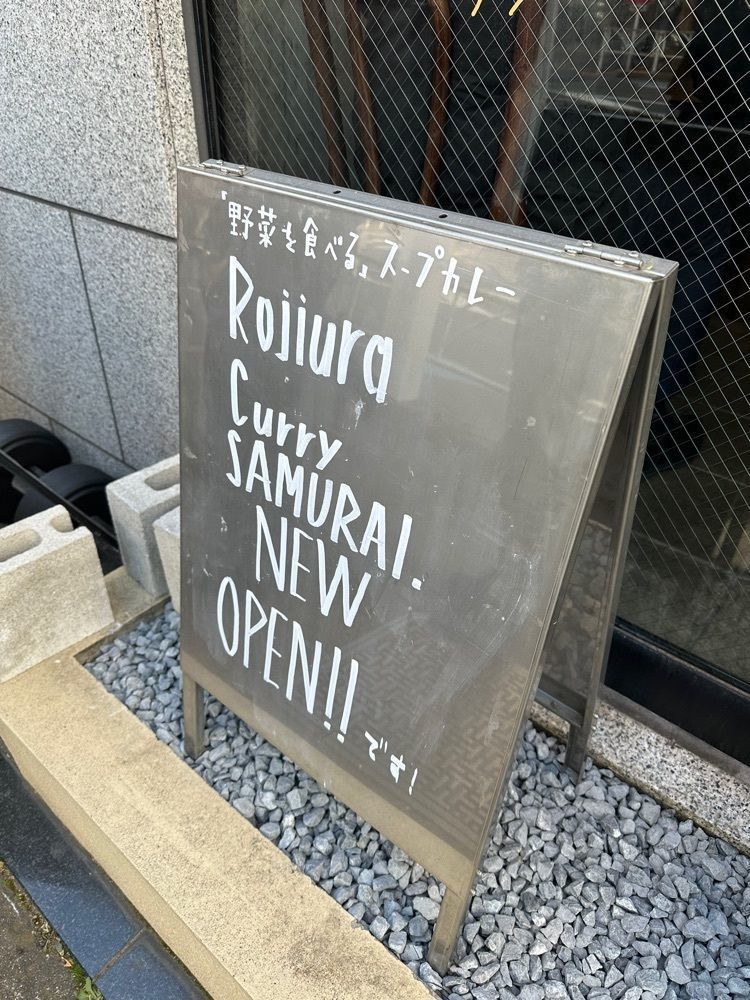 「野菜を食べる」スープカレー
Rojiura
Curry
SAMURAI.
NEW
OPEN!!
です!